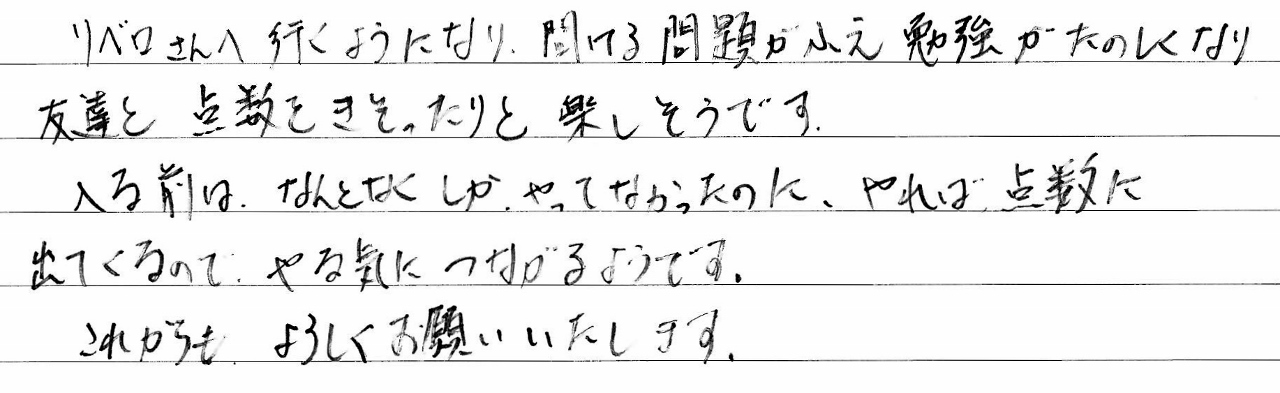 リベロさんへ行くようになり、聞ける問題がふえ勉強がたのしくなり
友達と点数をきそったりと楽しそうです。
入る前は、なんとなくしか、やってなかったのに、やれば、点数に
出てくるので、やる気につながるようです。
これからも、よろしくお願いいたします。